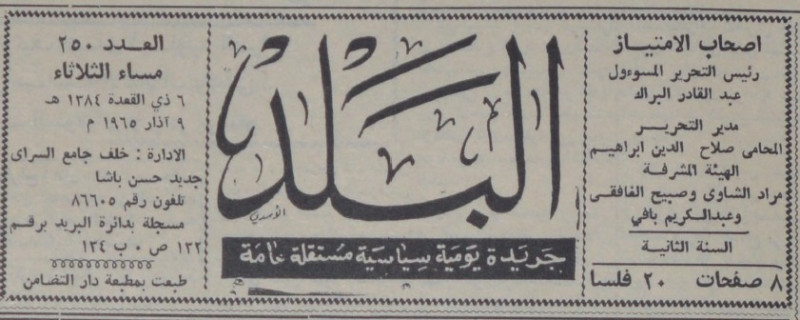 اصحاب الامتياز
رئيس التحرير المسوءول
عبد القادر البراك
مدير التحرير
المحامى صلاح الدين ابراهيم
الهيئة المشرفة
مراد الشاوى وصبيح الغافقى
وعبدالكريم بافي
السنة الثانية
٨ صفحات ٢٠ فلسا
البلد
الأسدي
جريدة يومية سياسية مستقلة عامة
العدد ٢٥٠
مساء الثلاثاء
٦ ذي القعدة ١٣٨٤ هـ
٩ آذار ١٩٦٥ م
الادارة : خلف جامع السراى
جديد حسن باشا
تلفون رقم ٨٦٦٠٥
مسجلة بدائرة البريد برقم
١٢٢ ص ٠ ب ١٣٤
طبعت بمطبعة دار التضامن